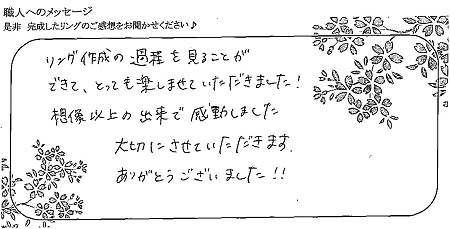 職人へのメッセージ
是非 完成したリングのご感想をお聞かせください♪
リング作成の過程を見ることが
できて、とっても楽しませていただきました!
想像以上の出来で感動しました
大切にさせていただきます.
ありがとうございました!!